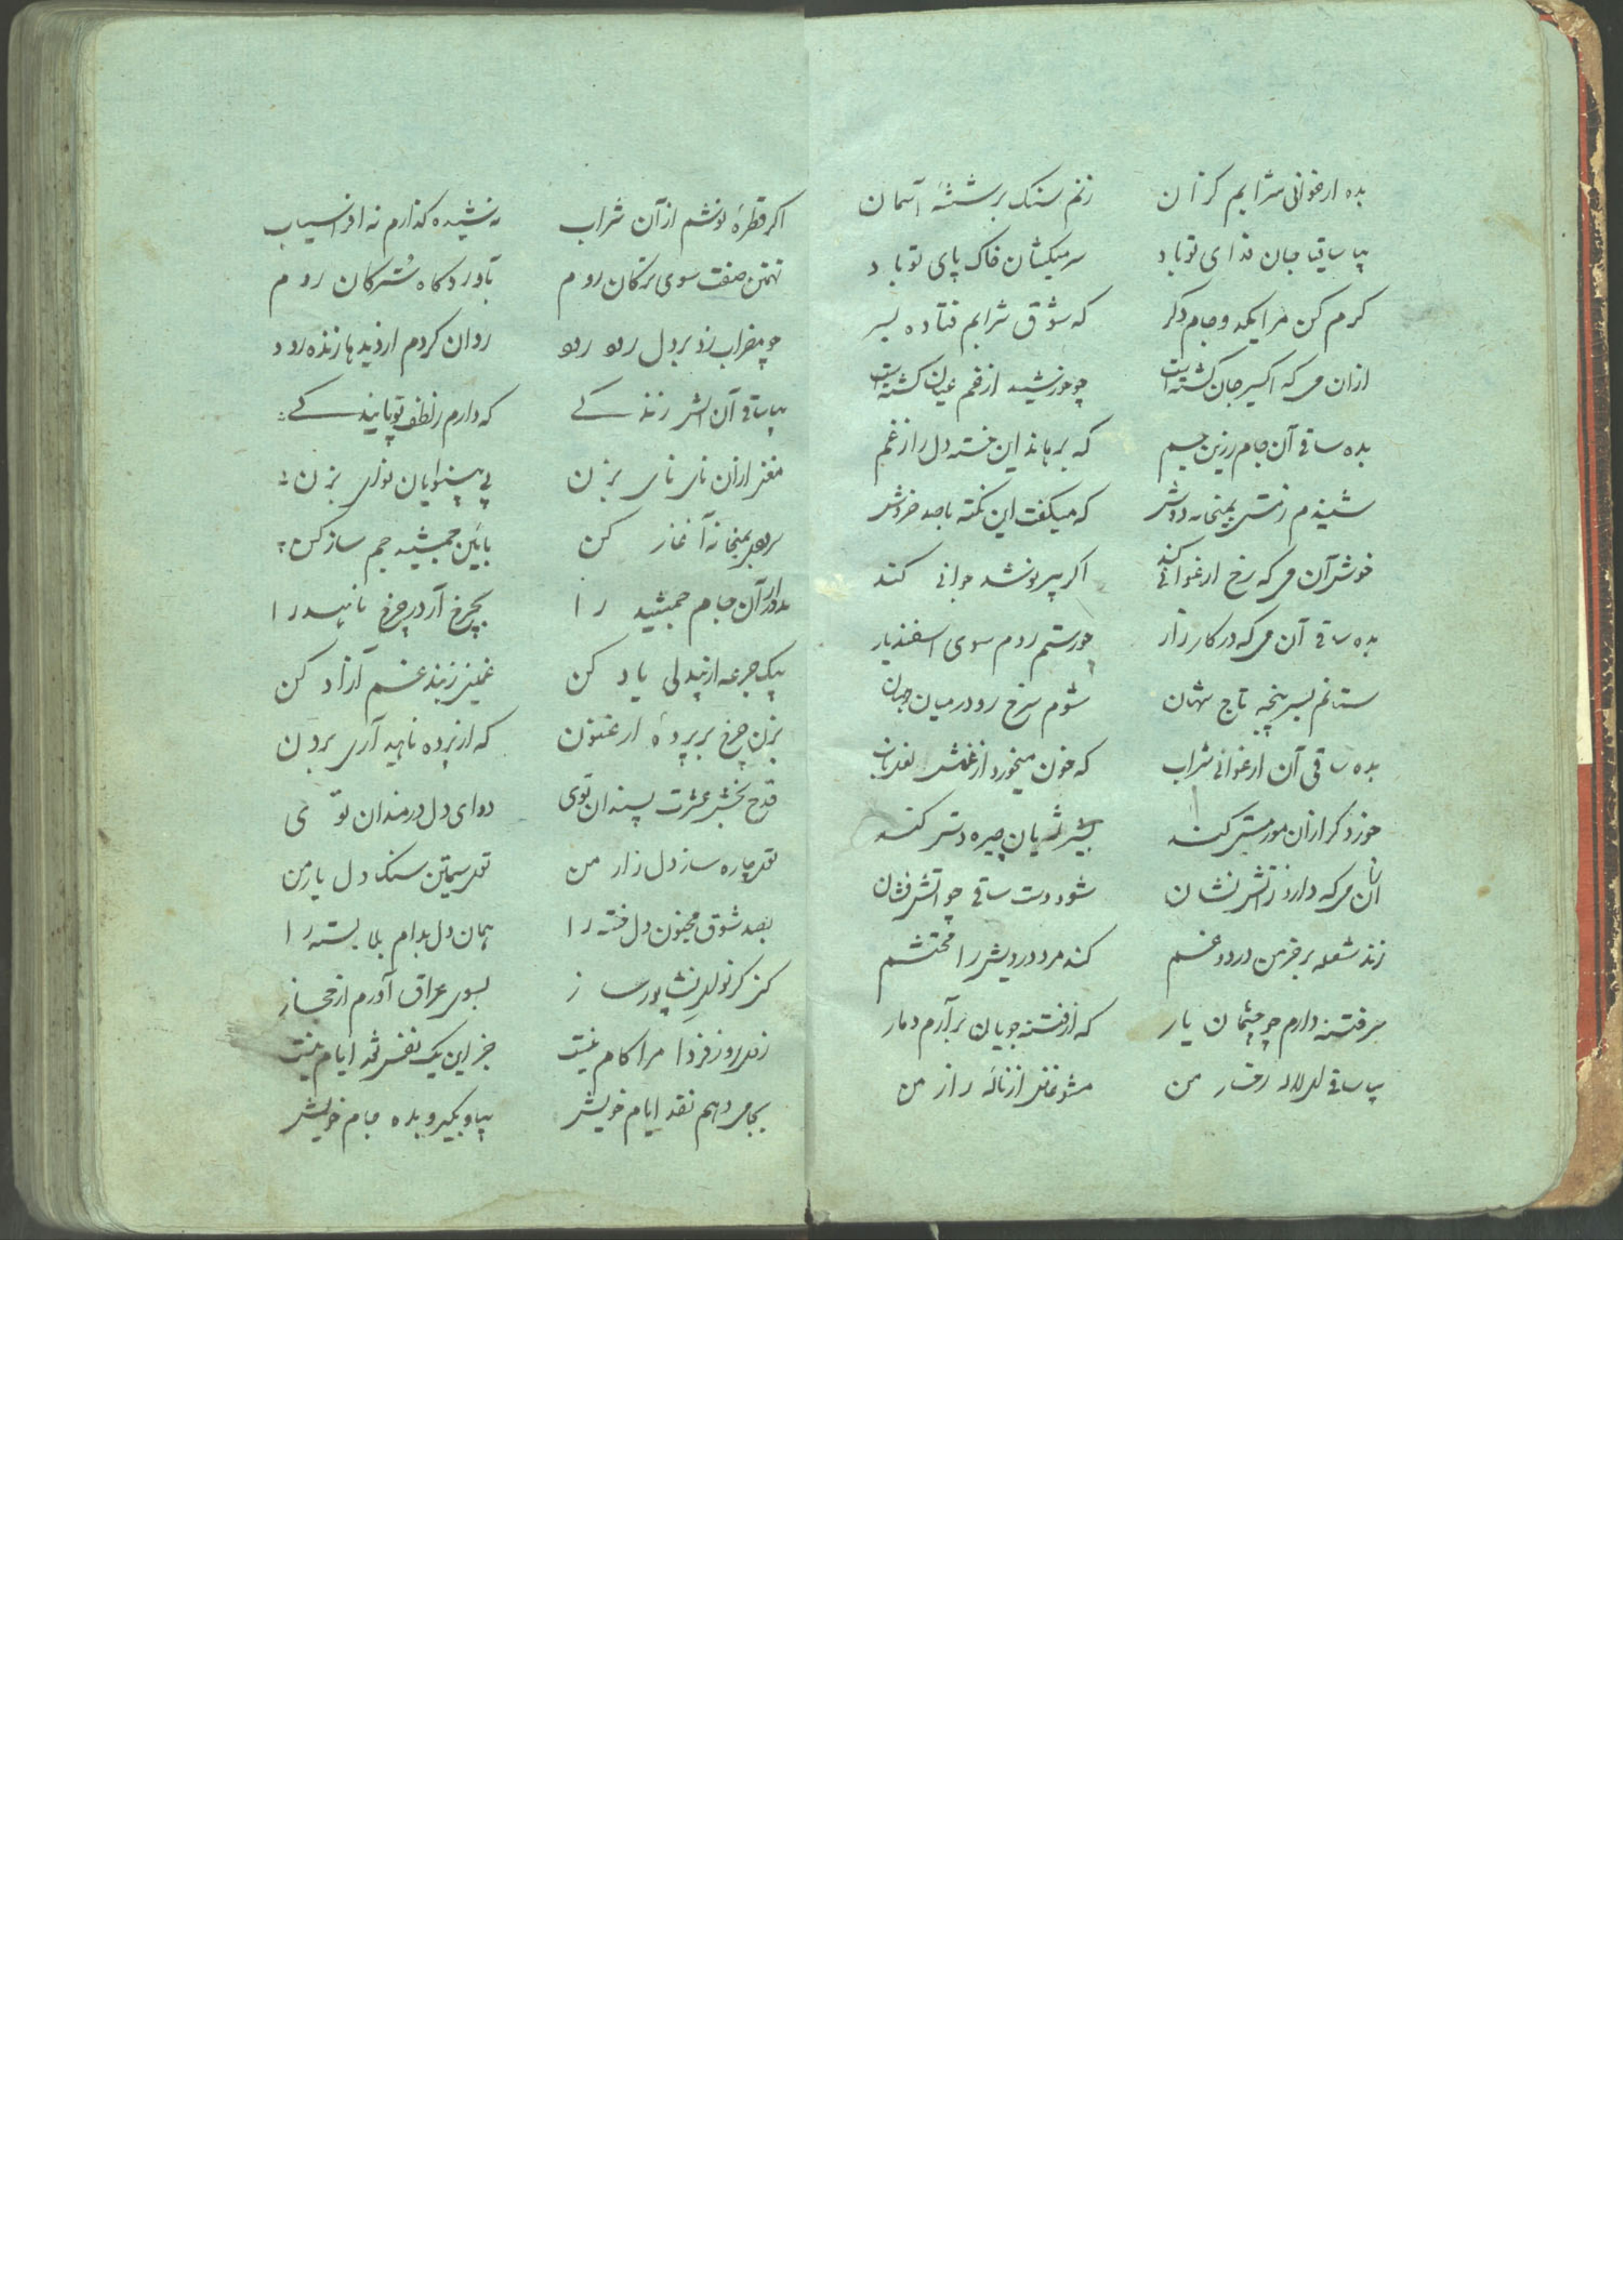 بده ارغوانی شرابم کزان زنم سنک بر شیشهٔ آسمان
بیا ساقیا جان فدای تو باد سر میکشان خاک پای تو باد
کرم کن مرا یکدو جام دکر که شوق شرابم فتاده بسر
ازان می که اکسیر جان کشته است چو خورشید از خم عیان کشته است
بده ساقی آن جام زرین جسم که برهاند این خسته دل را ز غم
شنیدم ز مستی بمیخانه دوش که میکفت این نکته باصد خروش
خوش آن می که رخ ارغوانی کند اکر پیر نوشد جوانی کند
بده ساقی آن می که در کارزار چو رستم روم سوی اسفندیار
ستانم بسر پنجه تاج شهان شوم سرخ رو در میان جهان
بده ساقی آن ارغوانی شراب که خون میخورد از غمش
خورد کر ازان مور مستی کند بشیر ژیان چیره دستی کند
ازان می که دارد ز آتش نشان شود دست ساقی چو آتش فشان
زند شعله بر خرمن درد و غم کند مرد درویش را محتشم
سر فتنه دارم چو چشمان یار که از فتنه جویان برآرم دمار
بیا ساقی ای لاله رخسار من مشو غافل از نالهٔ زار من
اکر قطرهٔ نوشم از آن شراب نه شیده کذارم نه افراسیاب
تهمتن صفت سوی ترکان روم بآوردکاه سترکان روم
چو مضراب زد بر دل روان کردم از دیدها زنده رود
بیا ساقی آن آتش زندکی که دارم ز لطف تو پایندکی
مغنی ازان نای نای بزن پی بینوایان نوای بزن
بمیخانه آغاز کن بآئین جمشید جم ساز کن
آن جام جمشید را بچرخ آر در چرخ ناهید را
بیک جرعه از بیدلی یاد کن غمین ز بند غم آزاد کن
بزن چرخ بر پردهٔ ارغنون که از پرده ناهید آری برون
قدح بخش عشرت پسندان توی دوای دل دردمندان توی
توی چاره ساز دل زار من توی سیمتن سنک دل یار من
بصد شوق مجنون دل خسته را همان دل بدام بلا بسته را
کنز کر نوای نشاپور ساز بسوی عراق آورم از حجاز
روز فردا مرا کام نیست جز این یک نفس نقد ایام نیست
بجامی دهم نقد ایام خویش بیا و بکیر و بده جام خویش